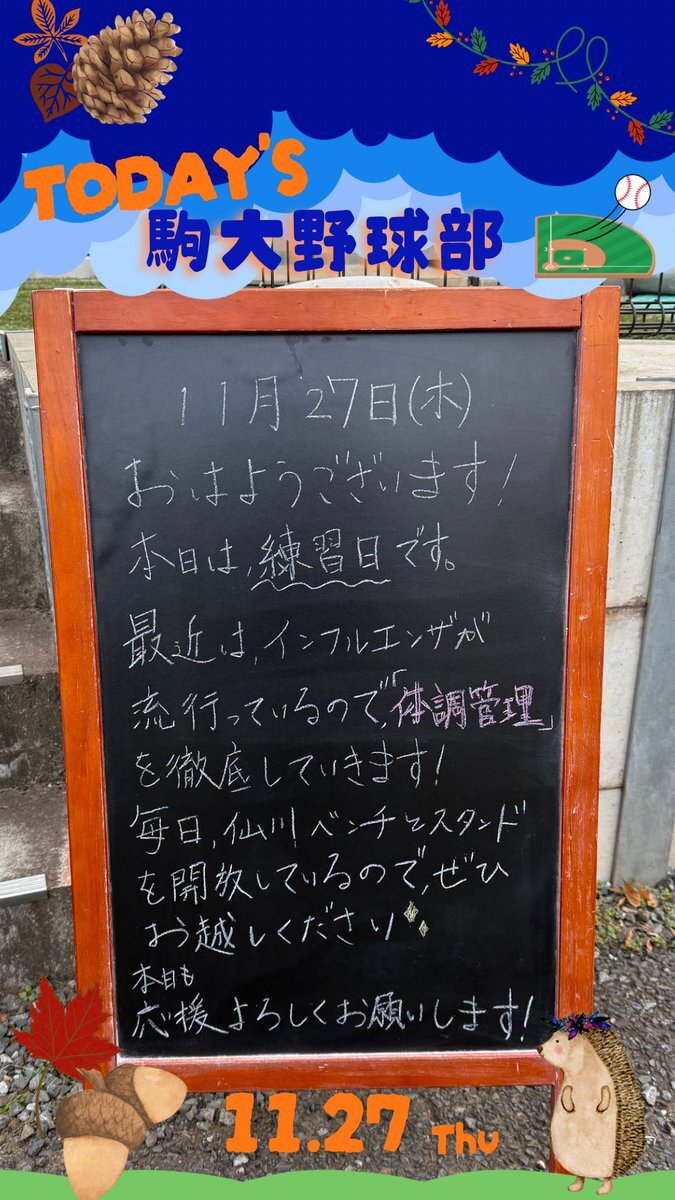 TODAY'S
駒大野球部
11月27日(木)
おはようございます!
本日は、練習日です。
最近は、インフルエンザが
流行っているので、「体調管理」
を徹底していきます!
毎日、仙川ベンチとスタンド
を開放しているので、ぜひ
お越しください
本日も
応援よろしくお願いします!
11.27 Thu